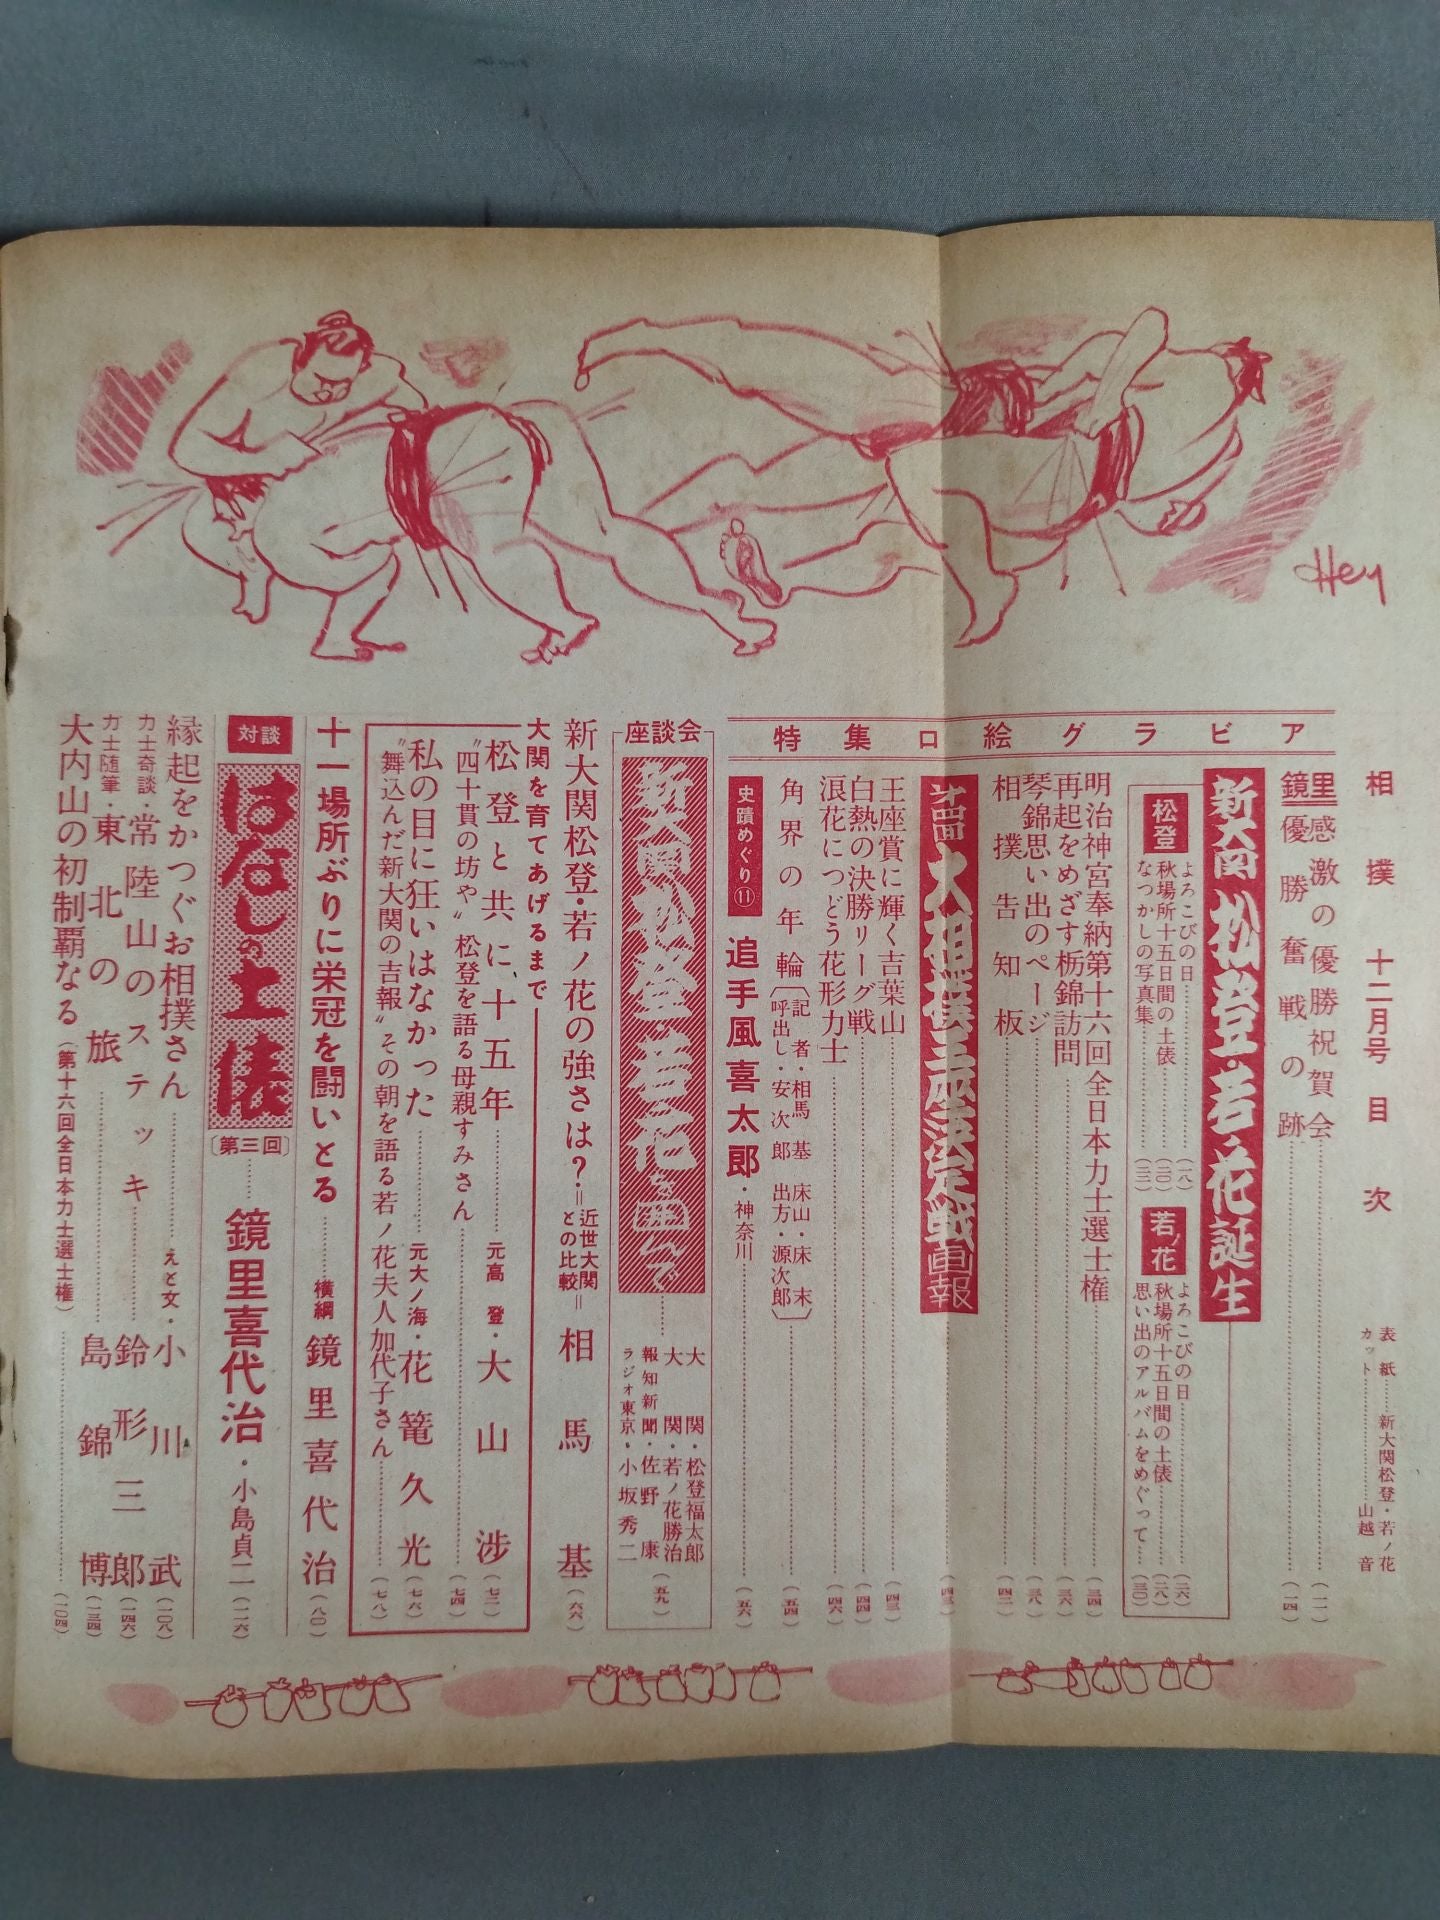 Hey
相撲 十二月号 目次
表紙……新大関松登・若ノ花
カット……山越音
特集口絵グラビア
鏡里感激の優勝祝賀会……(一一)
優勝奮戦の跡……(一四)
新大関松登・若ノ花誕生
松登
よろこびの日……(一八)
秋場所十五日間の土俵……(二〇)
なつかしの写真集……(二二)
若ノ花
よろこびの日……(二六)
秋場所十五日間の土俵……(二八)
思い出のアルバムをめぐって……(三〇)
明治神宮奉納第十六回全日本力士選士権……(三四)
再起をめざす栃錦訪問……(三六)
琴錦思い出のページ……(三八)
相撲告知板……(四二)
第四回大相撲王座決定戦画報……(四三)
王座賞に輝く吉葉山……(四三)
白熱の決勝リーグ戦……(四四)
浪花につどう花形力士……(四六)
角界の年輪〔記者・相馬基 床山・床末 呼出し・安次郎 出方・源次郎〕……(五四)
史蹟めぐり⑪ 追手風喜太郎・神奈川……(五六)
座談会
新大関松登・若ノ花を囲んで……(五九)
大関・松登福太郎
大関・若ノ花勝治
報知新聞・佐野康
ラジオ東京・小坂秀二
新大関松登・若ノ花の強さは?=近世大関との比較= 相馬基(六六)
大関を育てあげるまで
松登と共に、十五年……元高登・大山渉(七二)
〝四十貫の坊や〟松登を語る母親すみさん……(七四)
私の目に狂いはなかった……元大ノ海・花籠久光(七六)
〝舞込んだ新大関の吉報〟その朝を語る若ノ花夫人加代子さん……(七八)
十一場所ぶりに栄冠を闘いとる……横綱 鏡里喜代治(八〇)
対談
はなしの土俵
〔第三回〕……鏡里喜代治・小島貞二(一二六)
縁起をかつぐお相撲さん……えと文・小川武(一〇八)
力士奇談・常陸山のステッキ……鈴形三郎(一四六)
力士随筆・東北の旅……島錦博(一三四)
大内山の初制覇なる(第十六回全日本力士選士権)……(一〇四)